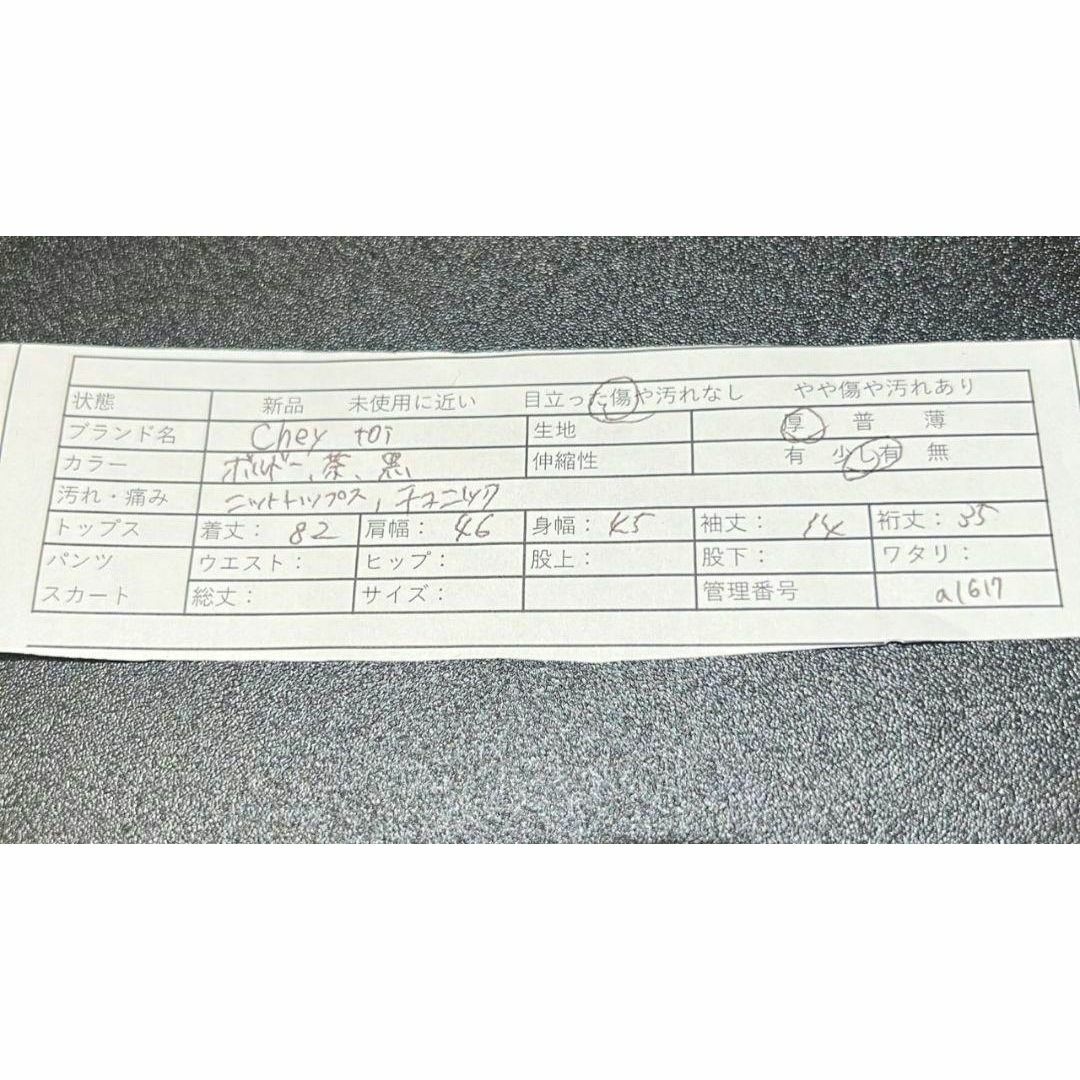 状態 新品 未使用に近い 目立った傷や汚れなし やや傷や汚れあり
ブランド名 Chey toi 生地 厚 普 薄
カラー ボルドー、茶、黒 伸縮性 有 少し有 無
汚れ・痛み ニットトップス、チュニック
トップス 着丈: 82 肩幅: 46 身幅: 45 袖丈: 14 裄丈: 35
パンツ ウエスト: ヒップ: 股上: 股下: ワタリ:
スカート 総丈: サイズ: 管理番号 a1617